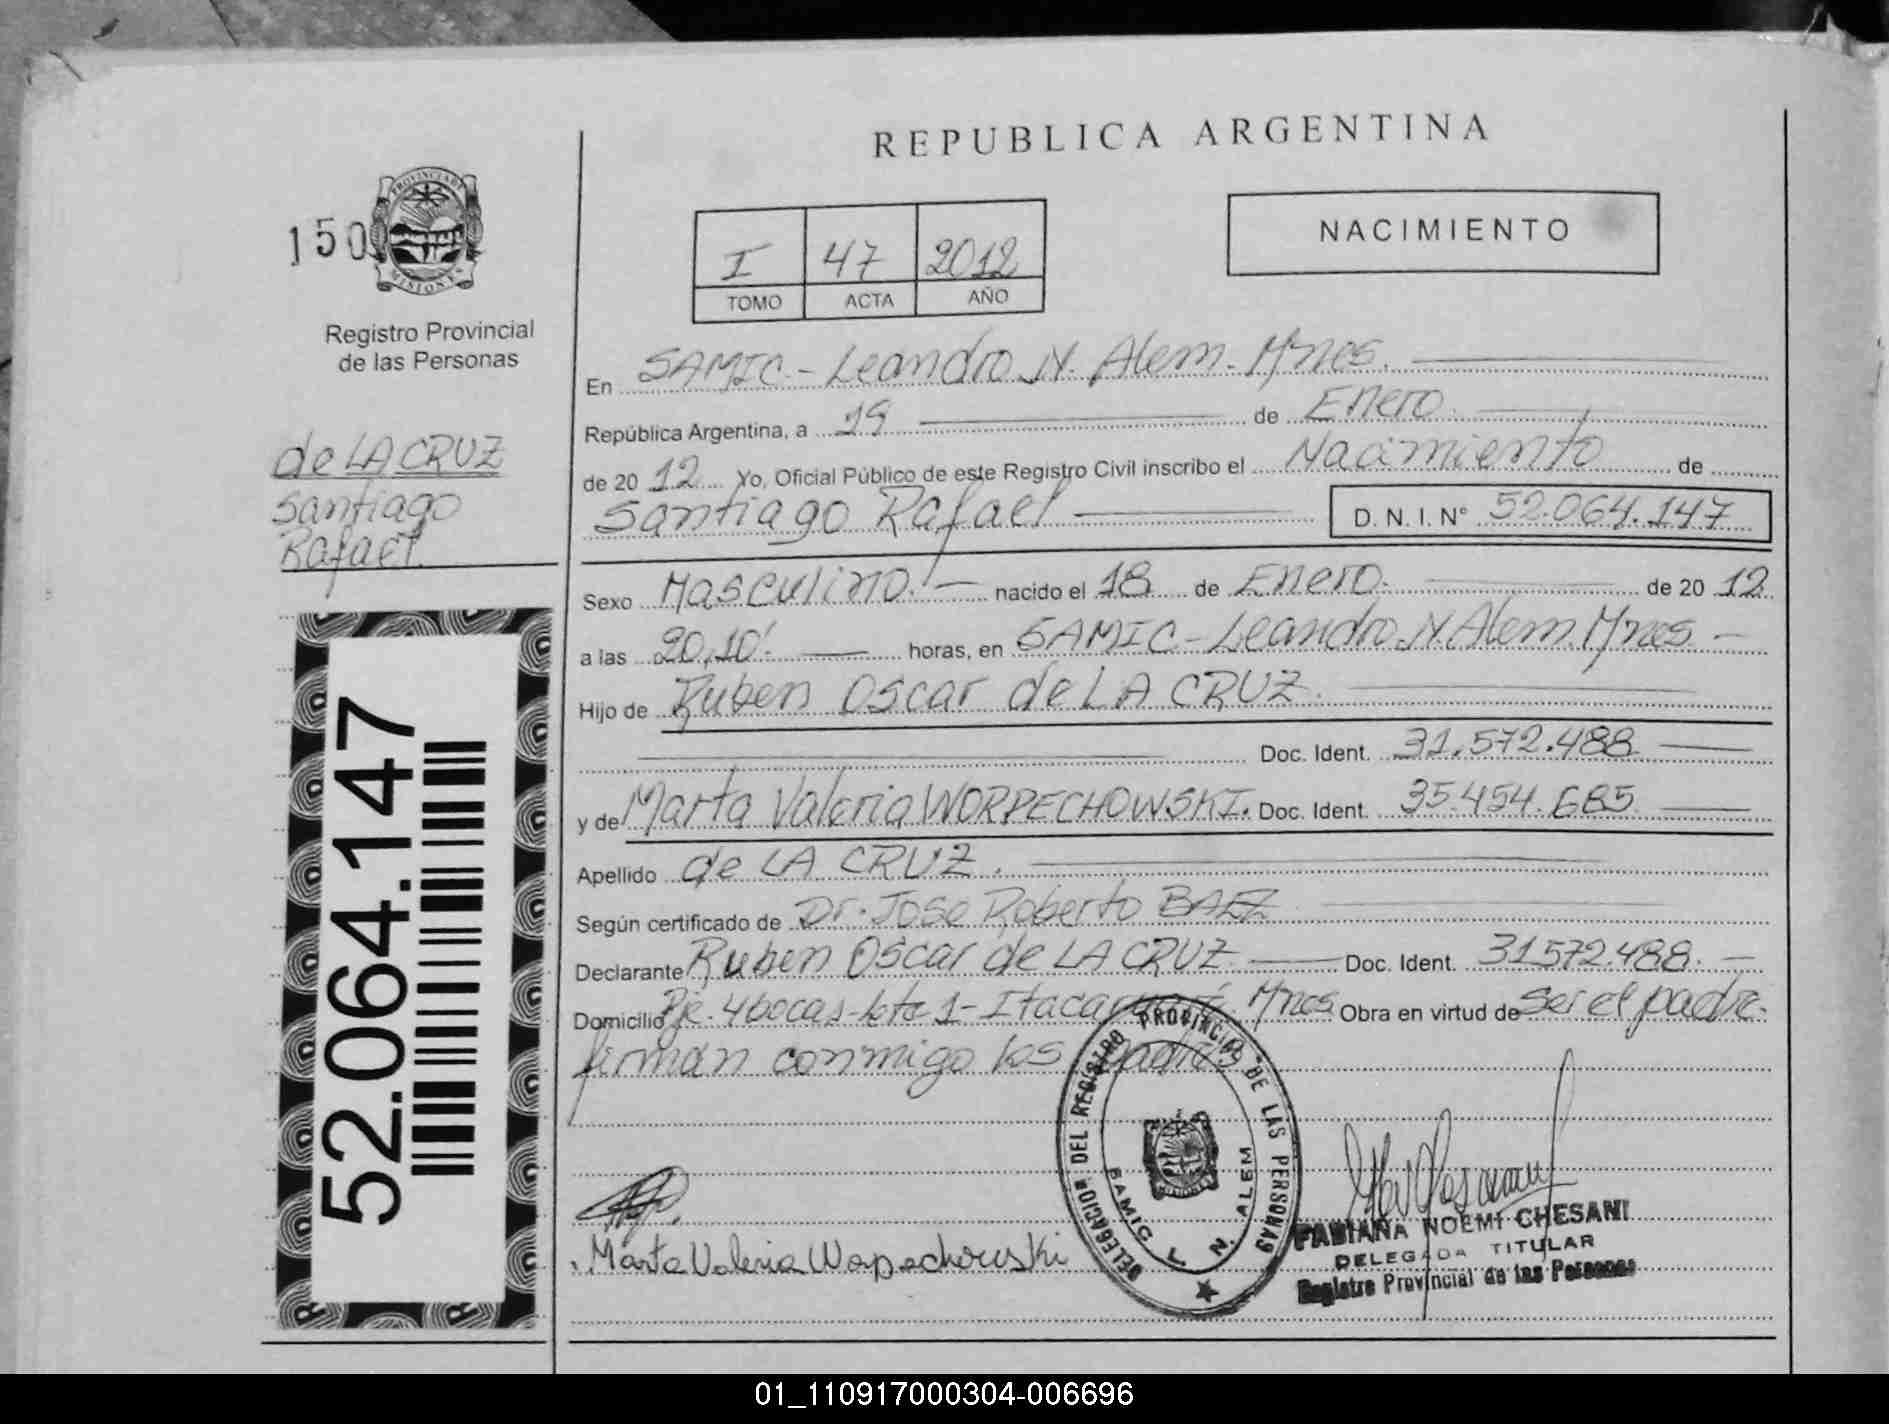 REPUBLICA ARGENTINA
150
PROVINCIA DE
MISIONES
Registro Provincial
de las Personas
I 47 2012
TOMO ACTA AÑO
NACIMIENTO
de LA CRUZ
Santiago
Rafael.
52.064.147
En SAMIC - Leandro N. Alem. Mnes.
República Argentina, a 19 de Enero.
de 20 12 Yo, Oficial Público de este Registro Civil inscribo el Nacimiento de
Santiago Rafael D. N. I. N° 52.064.147
Sexo Masculino. nacido el 18 de Enero. de 20 12
a las 20,10'. horas, en SAMIC - Leandro. N. Alem. Mnes.
Hijo de Ruben Oscar de LA CRUZ.
Doc. Ident. 31.572.488
y de Marta Valeria WORPECHOWSKI. Doc. Ident. 35.454.685
Apellido de LA CRUZ.
Según certificado de Dr. Jose Roberto BAEZ
Declarante Ruben Oscar de LA CRUZ Doc. Ident. 31.572.488.
Domicilio Pje. 4 bocas - lote 1 - Mnes Obra en virtud de ser el padre.
firman conmigo los padres
DELEGACION DEL REGISTRO PROVINCIAL DE LAS PERSONAS
SAMIC L. N. ALEM
Marta Valeria Worpechowski
FABIANA NOEMI CHESANI
DELEGADA TITULAR
Registro Provincial de las Personas
01_110917000304-006696